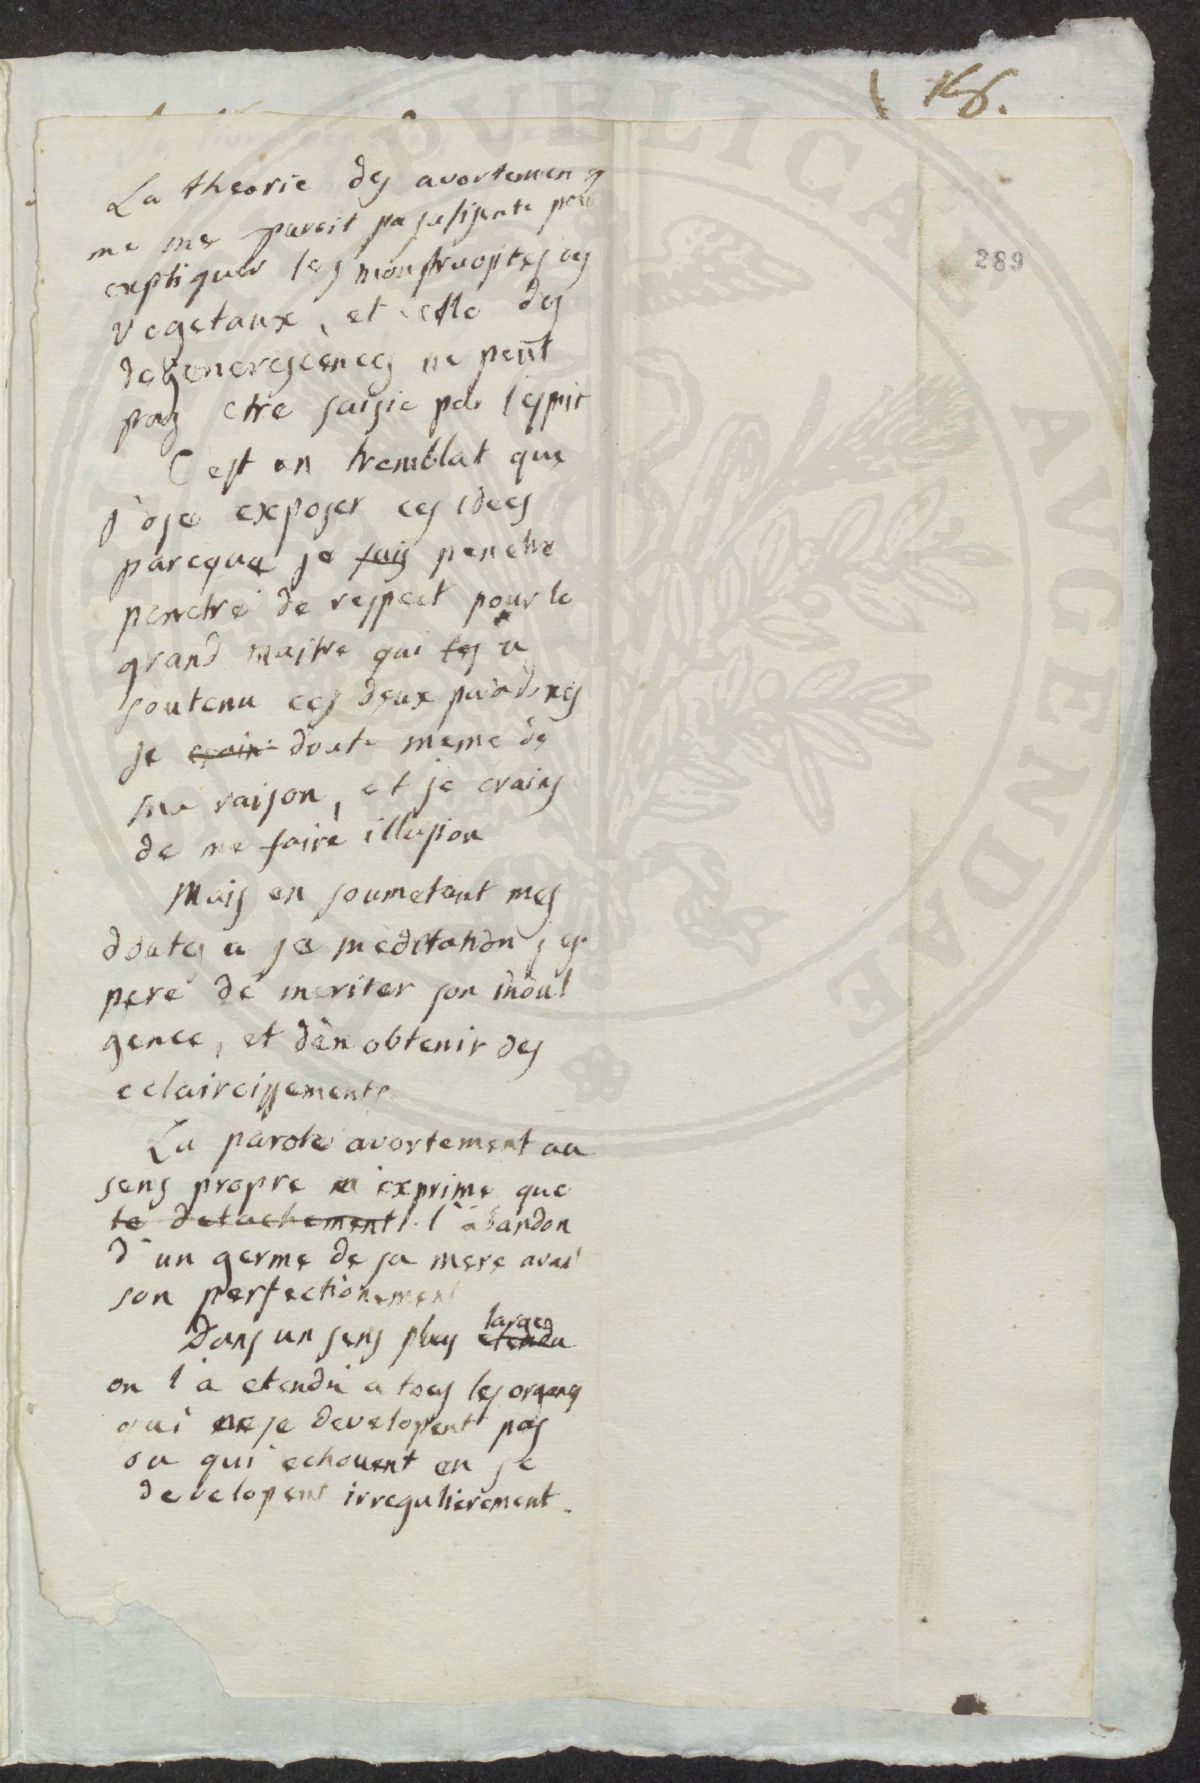 168.
289
La theorie des avortemens
ne me pareit pas sufisente pour
expliquer les monstruosites des
vegetaux, et celle des
degenerescences ne peut
pas etre saisie par l'esprit
C'est en tremblat que
j'ose exposer ces idees
parceque je suis penetre
penetré de respect pour le
grand maitre qui les a
soutenu ces deux paradoxes
je crain doute meme de
ma raison, et je crains
de me faire illusion
Mais en soumetant mes
doutes a sa meditation j'es
pere de meriter son indul
gence, et d'en obtenir des
eclaircissements
La parole avortement au
sens propre n'exprime que
le detachement l'abandon
d'un germe de sa mere avant
son perfectionement
larges
Dans un sens plus etendu
on l'a etendu a tous les organes
qui ne se developent pas
ou qui echouent en se
developent irregulierement.